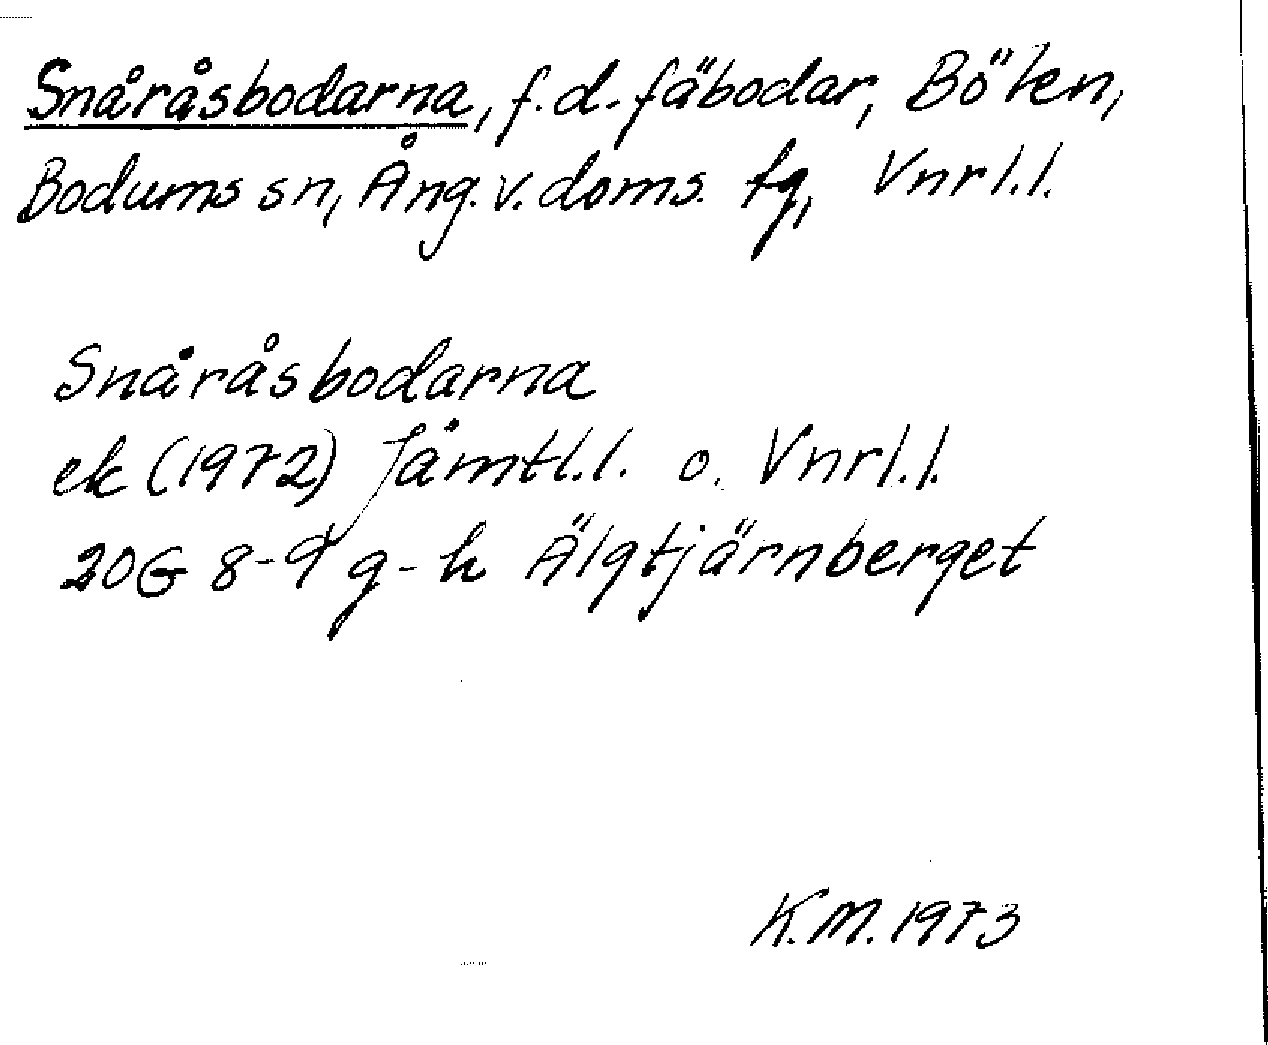 Snåråsbodarna, f.d. fäbodar, Bölen,
Bodums sn, Ång. v. doms. tg, Vnrl.l.
Snåråsbodarna
ek (1972) Jämtl.l. o. Vnrl.l.
20G 8-9 g-h Älgtjärnberget
K.M. 1973